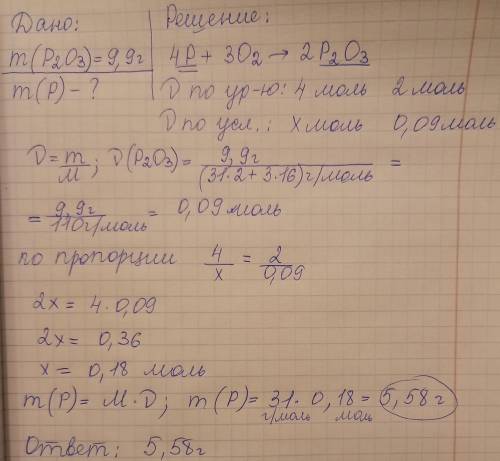 Дано:
m(P₂O₃)=9,9г
m(P) - ?
Решение:
4P + 3O₂ → 2P₂O₃
D по ур-ю: 4 моль 2 моль
D по усл.: x моль 0,09 моль
D = m/M; D(P₂O₃) = 9,9г/(31·2+3·16)г/моль =
= 9,9г/110г/моль = 0,09 моль
по пропорции 4/x = 2/0,09
2x = 4·0,09
2x = 0,36
x = 0,18 моль
m(P) = M·D; m(P) = 31 · 0,18 = 5,58г
г/моль моль
Ответ: 5,58г